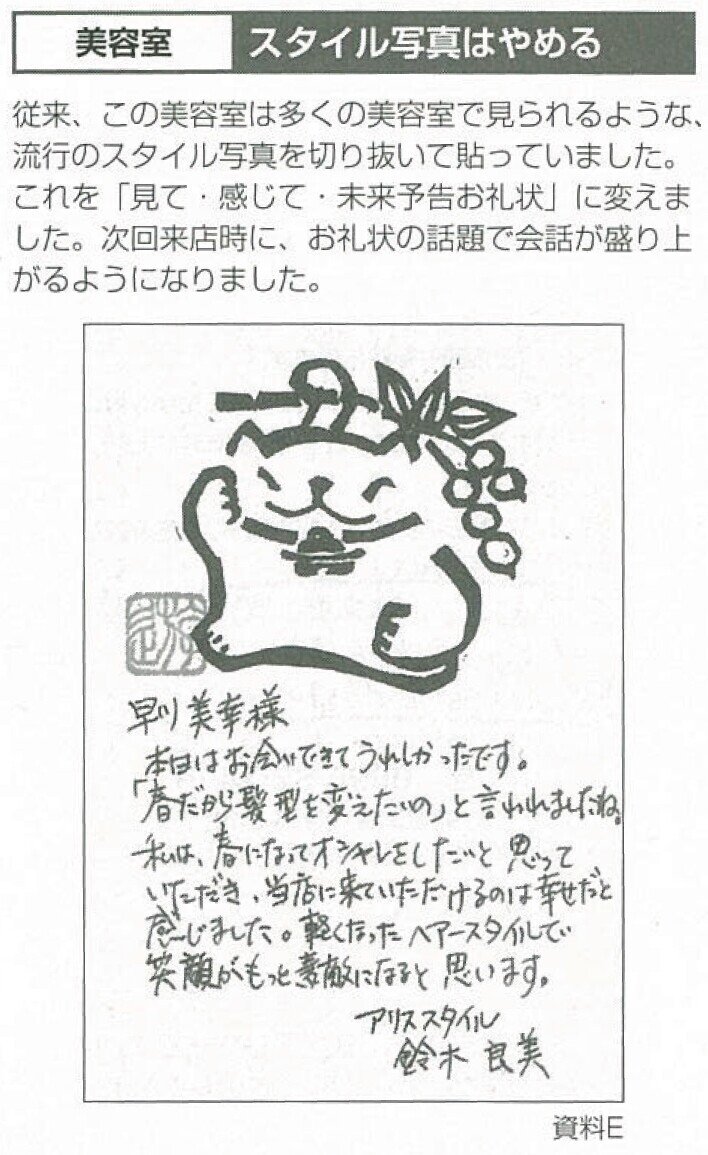 美容室 スタイル写真はやめる
従来、この美容室は多くの美容室で見られるような、
流行のスタイル写真を切り抜いて貼っていました。
これを「見て・感じて・未来予告お礼状」に変えま
した。次回来店時に、お礼状の話題で会話が盛り上
がるようになりました。
遊
早川美幸様
本日はお会いできてうれしかったです。
「春だから髪型を変えたいの」と言われましたね。
私は、春になってオシャレをしたいと思って
いただき、当店に来ていただけるのは幸せだと
感じました。軽くなったヘアースタイルで
笑顔がもっと素敵になると思います。
アリススタイル
鈴木良美
資料E